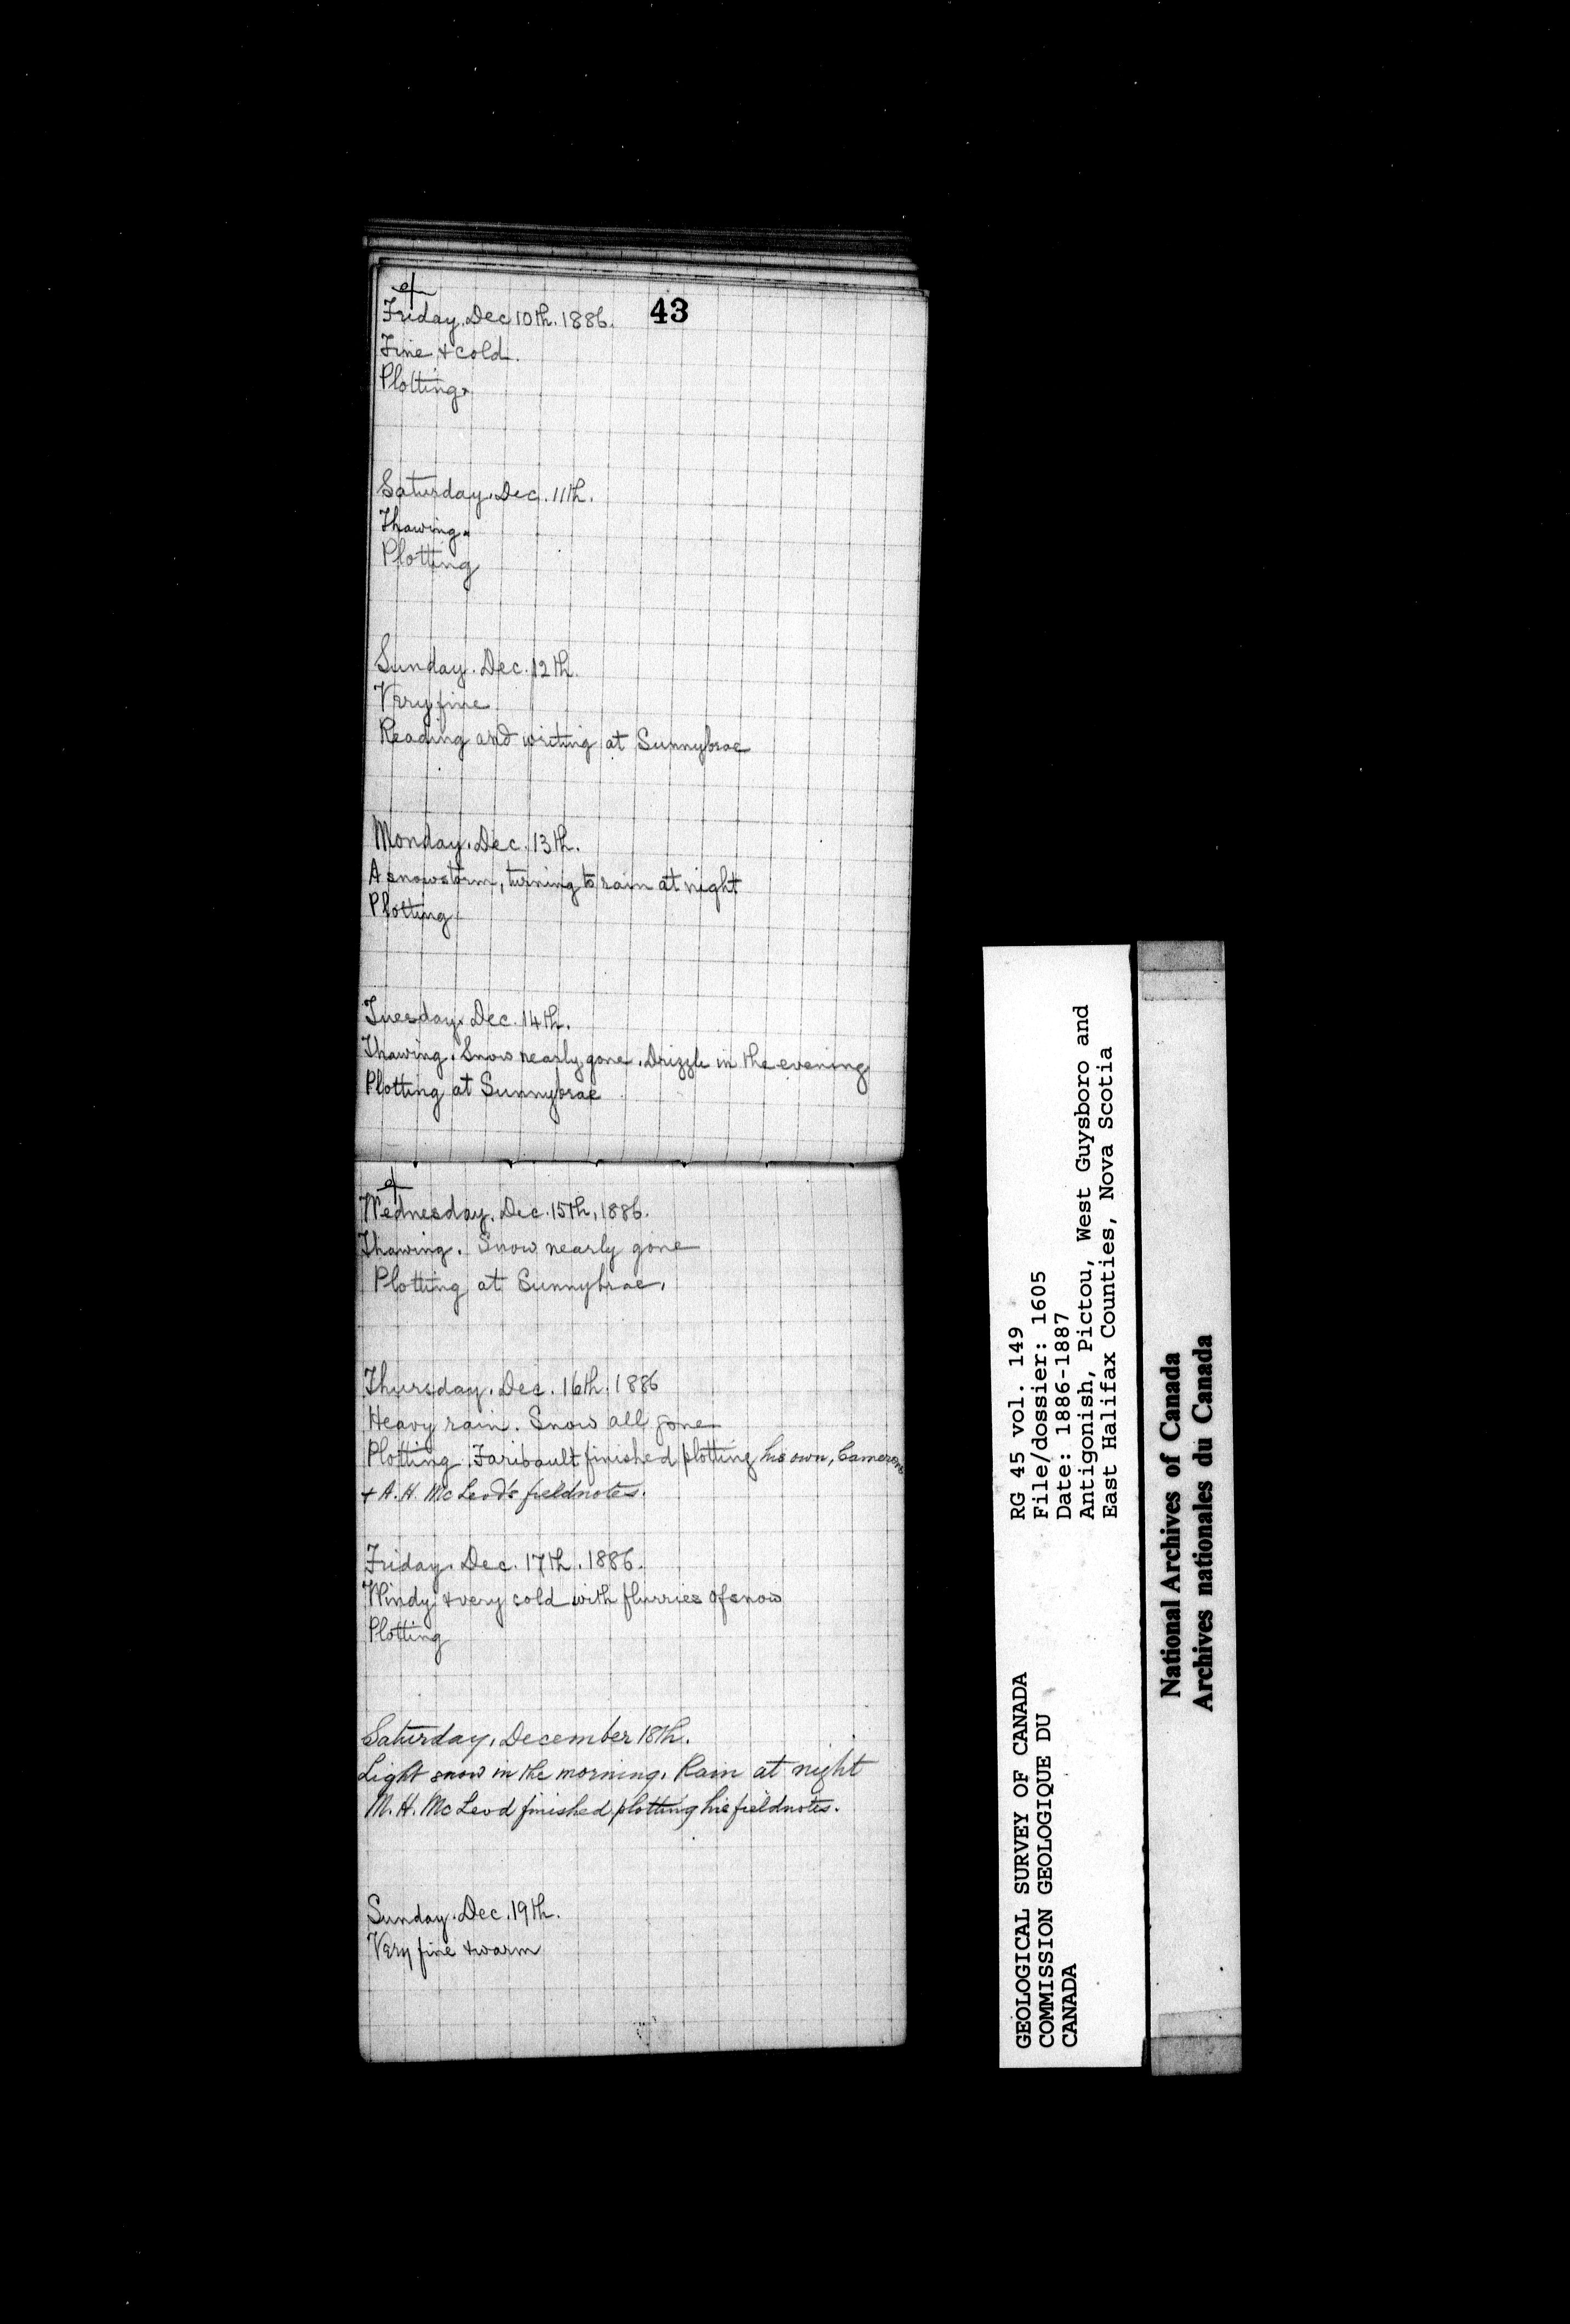 43
Friday. Dec 10th. 1886.
Fine + cold.
Plotting.
Saturday. Dec. 11th.
Thawing.
Plotting
Sunday. Dec. 12th.
Very fine
Reading and writing at Sunnybrae
Monday. Dec. 13th.
A snowstorm, turning to rain at night
Plotting
Tuesday. Dec. 14th.
Thawing. Snow nearly gone. Drizzle in the evening
Plotting at Sunnybrae
Wednesday. Dec. 15th, 1886.
Thawing. Snow nearly gone
Plotting at Sunnybrae.
Thursday. Dec. 16th. 1886
Heavy rain. Snow all gone
Plotting. Faribault finished plotting his own, Camerons
+ A. H. McLeod's fieldnotes.
Friday. Dec. 17th. 1886.
Windy + very cold with flurries of snow
Plotting
Saturday, December 18th.
Light snow in the morning. Rain at night
M. H. McLeod finished plotting his fieldnotes.
Sunday. Dec. 19th.
Very fine + warm
GEOLOGICAL SURVEY OF CANADA
COMMISSION GEOLOGIQUE DU
CANADA
RG 45 vol. 149
File/dossier: 1605
Date: 1886-1887
Antigonish, Pictou, West Guysboro and
East Halifax Counties, Nova Scotia
National Archives of Canada
Archives nationales du Canada